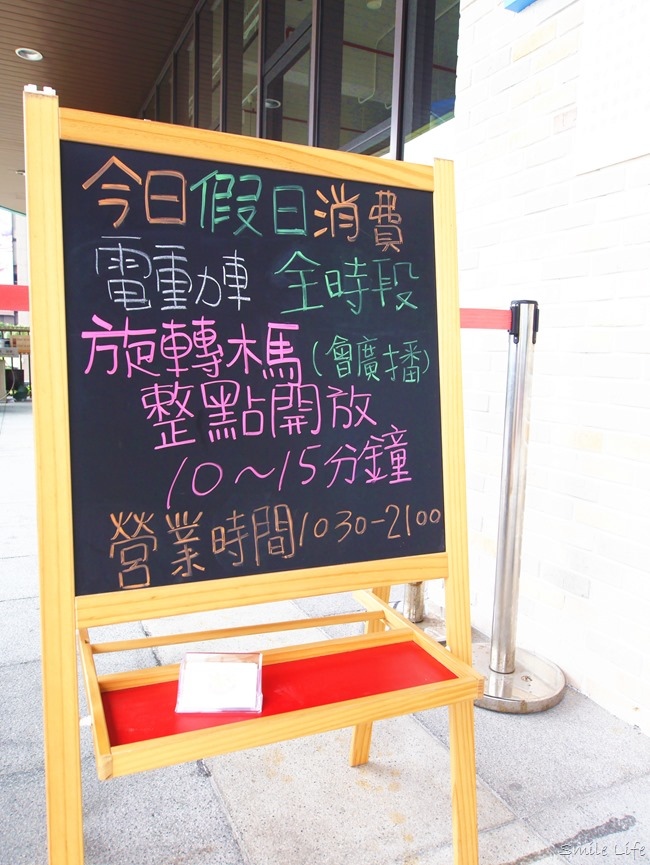 今日假日消費
電動車 全時段
旋轉木馬(會廣播)
整點開放
10～15分鐘
營業時間1030-2100
Smile Life